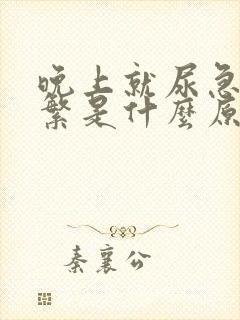 晚上就尿急
繁是什麼原
秦襄公